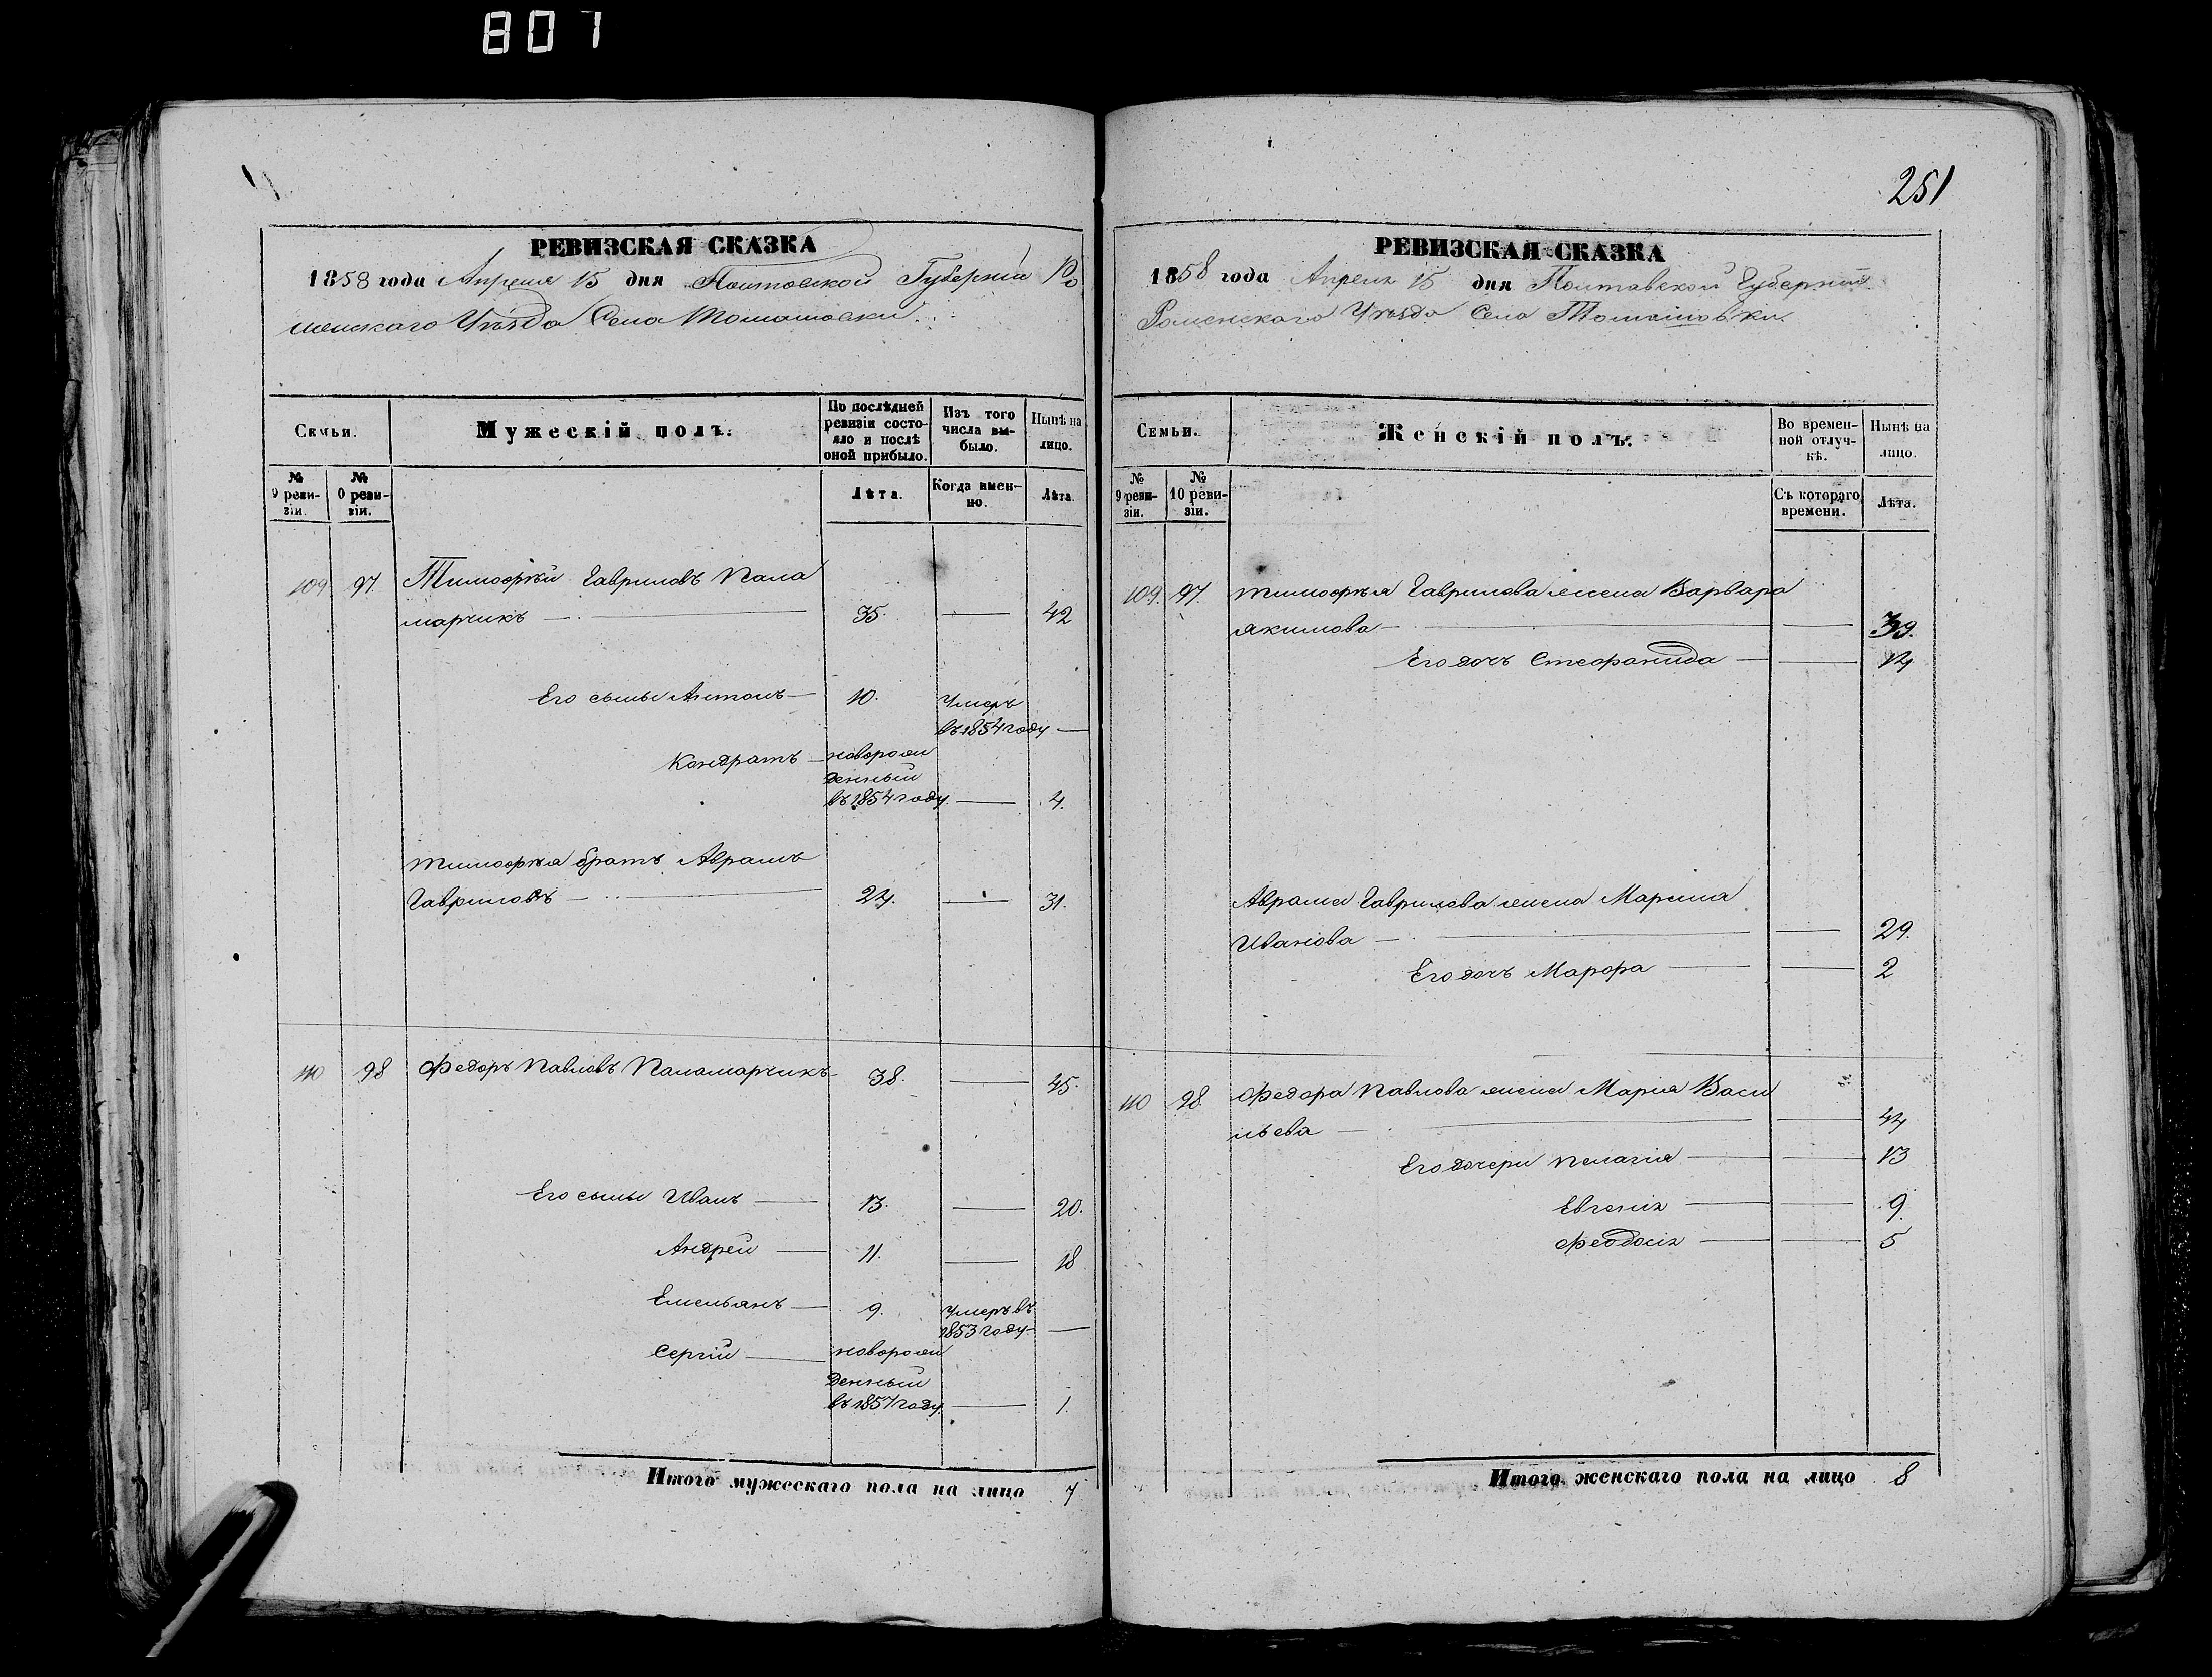 807
251
РЕВИЗСКАЯ СКАЗКА
1858 года Апреля 15 дня Полтавской Губерніи Ро
менскаго Уѣзда Села Томашовки.
Семьи.
Мужескій полъ.
По послѣдней ревизіи состояло и послѣ оной прибыло.
Изъ того числа выбыло.
Нынѣ на лицо.
№ 9 ревизіи.
№ 0 ревизіи.
Лѣта.
Когда именно.
Лѣта.
109 97. Тимофѣй Гавриловъ Пала
марчикъ — 35. — 42
Его сыны Антонъ — 10. Умеръ
въ 1854 году —
Кондратъ — новорож
денный
въ 1854 году. — 4.
Тимофѣя братъ Аврамъ
Гавриловъ — 24. — 31.
110 98 Федоръ Павловъ Паламарчикъ — 38. — 45.
Его сыны Иванъ — 13. — 20.
Андрей — 11. — 18
Емельянъ — 9. Умеръ въ
1853 году —
Сергій — новорож
денный
въ 1857 году. — 1.
Итого мужескаго пола на лицо 7
РЕВИЗСКАЯ СКАЗКА
1858 года Апреля 15 дня Полтавской Губерніи
Роменскаго Уѣзда Села Томашовки.
Семьи.
Женскій полъ.
Во временной отлучкѣ.
Нынѣ на лицо.
№ 9 ревизіи.
№ 10 ревизіи.
Съ котораго времени.
Лѣта.
109. 97. Тимофѣя Гаврилова жена Варвара
Якимова — — 39.
Его дочь Стефанида — — 14
Аврама Гаврилова жена Марина
Иванова — — 29.
Его дочь Марфа — — 2
110 98 Федора Павлова жена Марія Васи
льева — — 44
Его дочери Пелагія — — 13
Евгенія — — 9.
Феодосія — — 5
Итого женскаго пола на лицо 8